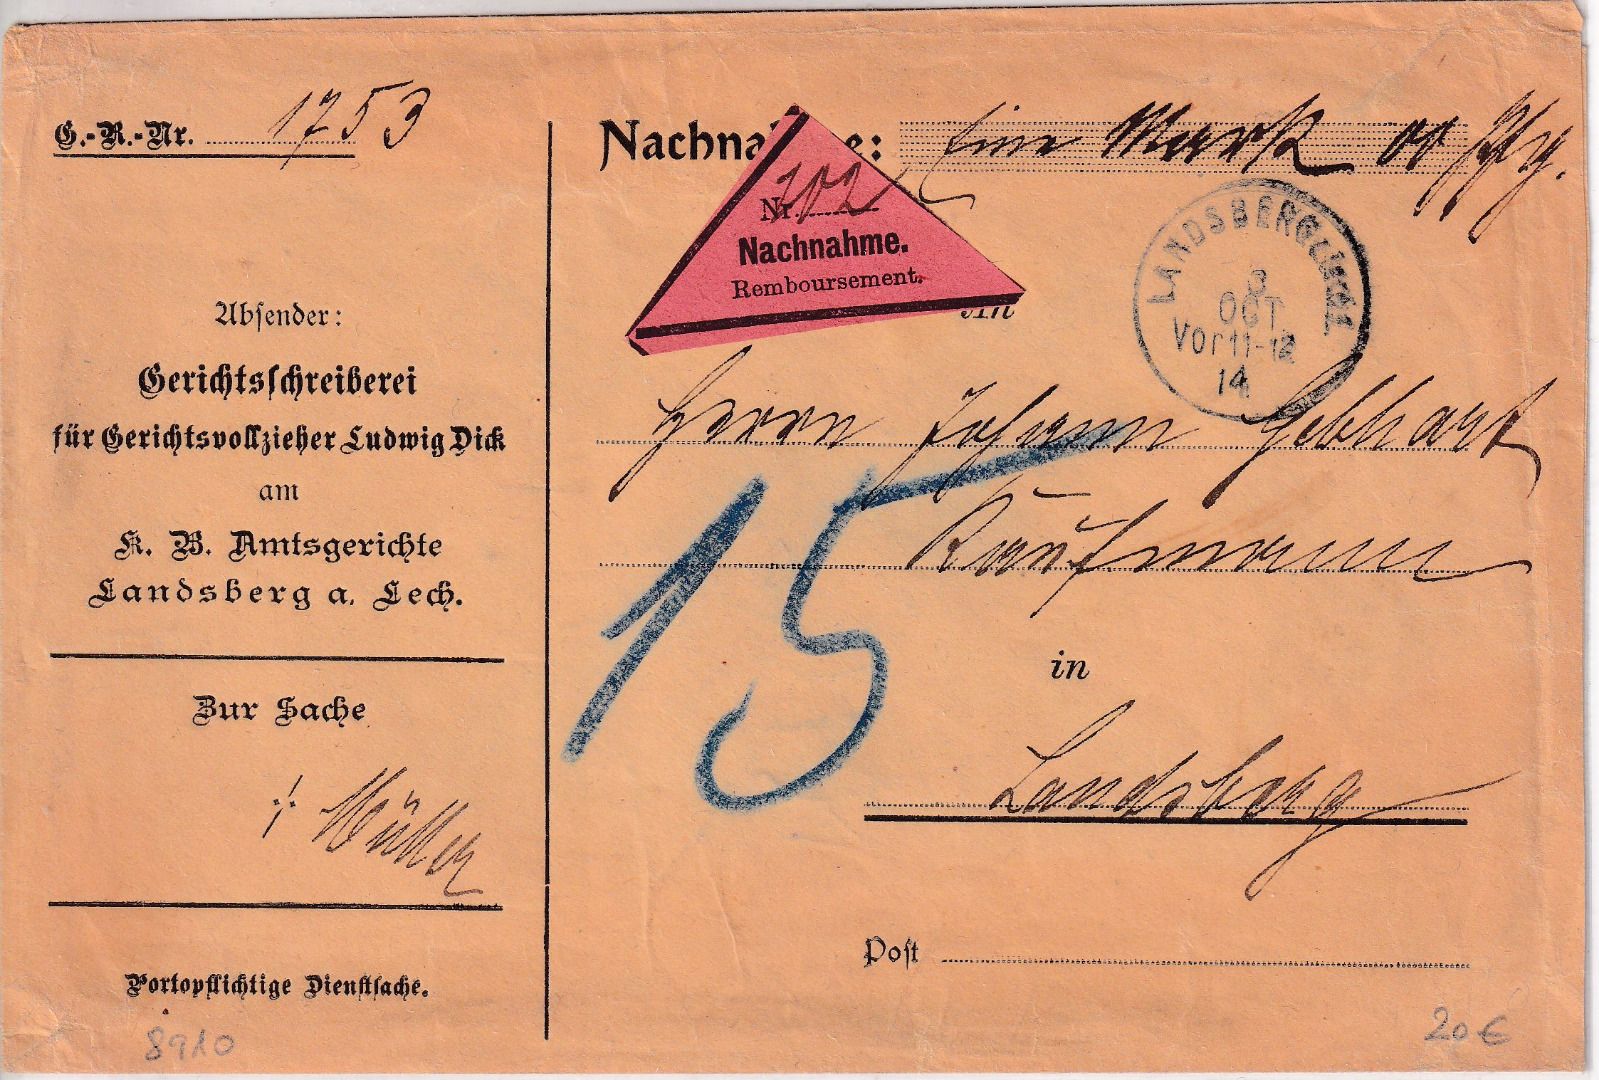 G.-R.-Nr. 1753
Absender:
Gerichtsschreiberei
für Gerichtsvollzieher Ludwig Dick
am
K. B. Amtsgerichte
Landsberg a. Lech.
Zur Sache
·/· Müller
Portopflichtige Dienstsache.
8910
Nachna e: Eine Mark 00 Pfg.
Nr. 202
Nachnahme.
Remboursement.
An
LANDSBERG
3
OCT
Vor 11-12
14
Herrn Johann Gebhart
Kaufmann
15
in
Landsberg
Post
20€